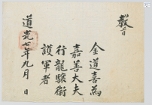 敎旨
金道喜爲
嘉善大夫
行龍驤衛
護軍者
道光七年九月 日